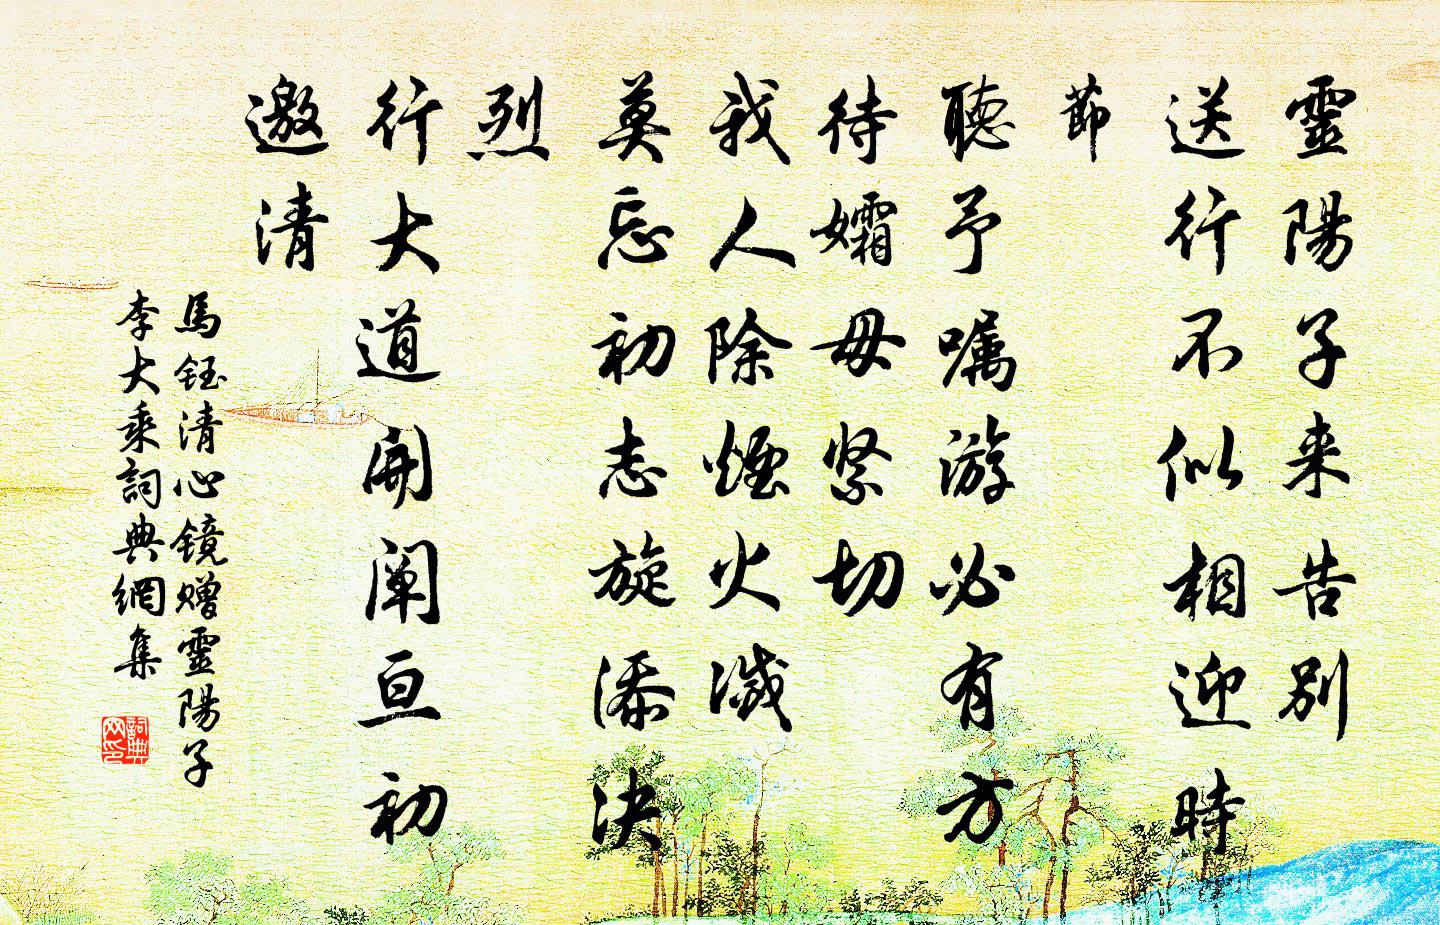 靈陽子来告别
送行不似相迎時
節
聽予嘱游必有方
待孀母緊切
我人除煙火滅
莫忘初志旋添决
烈
行大道開闡亘初
邀清
馬鈺清心镜赠靈陽子
李大乘詞典網集
詞典网印